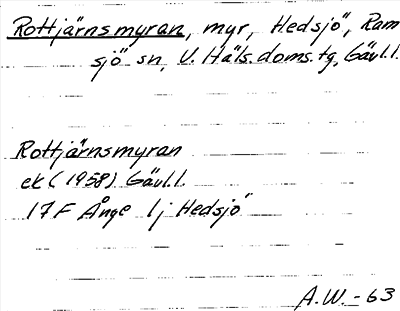 Rottjärnsmyran, myr, Hedsjö, Ram
sjö sn, V. Häls. doms. tg, Gävl.l.
Rottjärnsmyran
ek (1958) Gävl.l.
17F Ånge 1j Hedsjö
A.W.-63